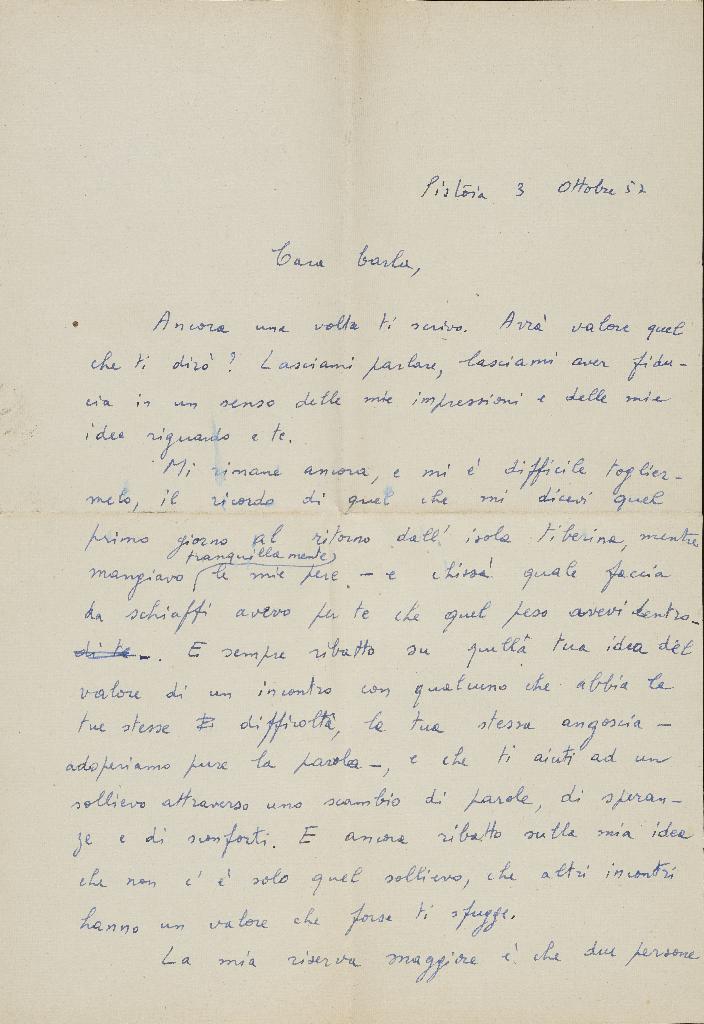 Pistoia 3 Ottobre 52
Cara Carla,
Ancora una volta ti scrivo. Avrà valore quel
che ti dirò? Lasciami parlare, lasciami aver fidu-
cia in un senso delle mie impressioni e delle mie
idee riguardo e te.
Mi rimane ancora, e mi è difficile toglier-
melo, il ricordo di quel che mi dicevi quel
primo giorno al ritorno dall'isola tiberina, mentre
tranquillamente
mangiavo le mie pere - e chissà quale faccia
da schiaffi avevo per te che quel peso avevi dentro
di te -. E sempre ribatto su quella tua idea del
valore di un incontro con qualcuno che abbia le
tue stesse difficoltà, la tua stessa angoscia -
adoperiamo pure la parola -, e che ti aiuti ad un
sollievo attraverso uno scambio di parole, di speran-
ze e di sconforti. E ancora ribatto sulla mia idea
che non c'è solo quel sollievo, che altri incontri
hanno un valore che forse ti sfugge.
La mia riserva maggiore è che due persone